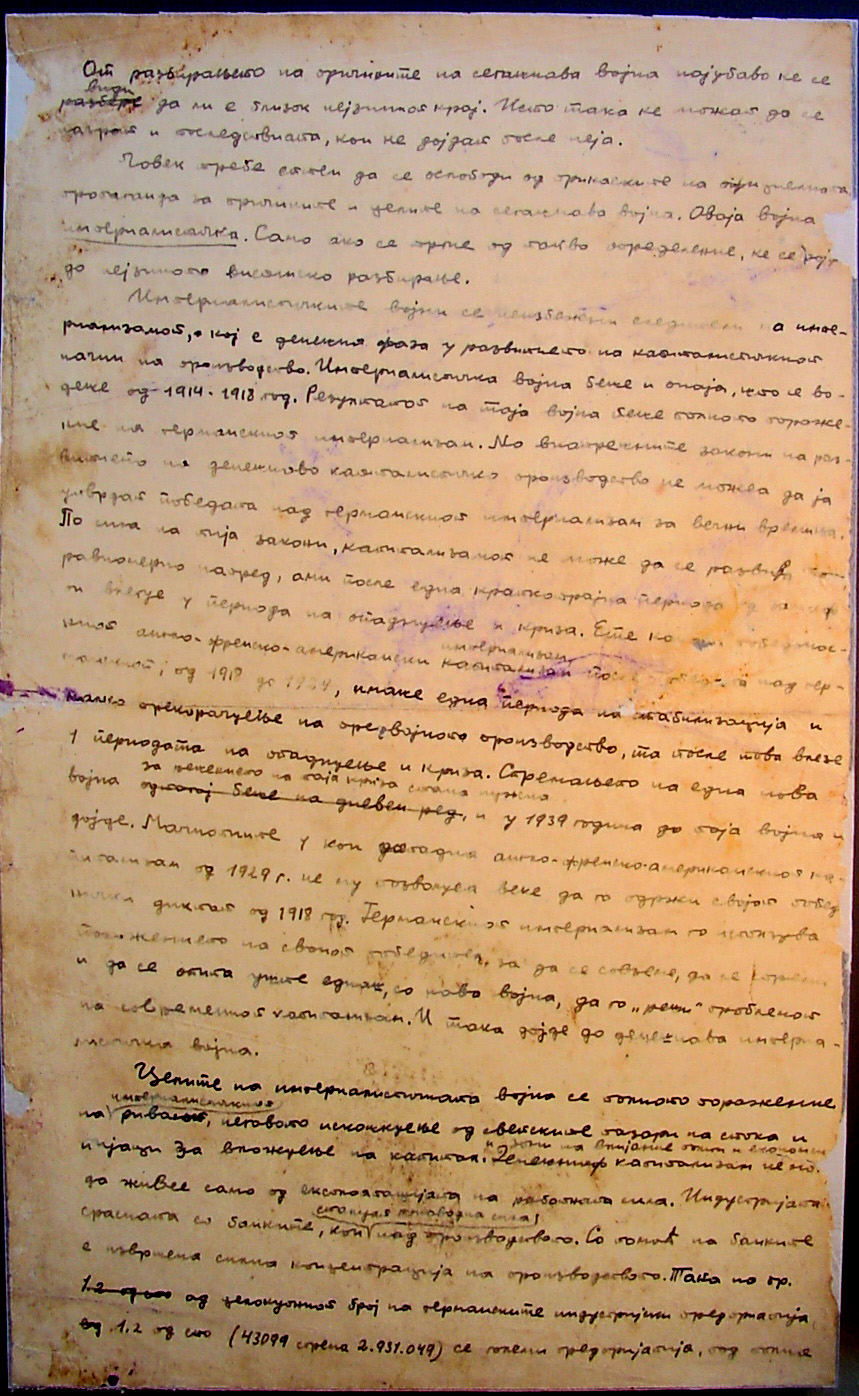 От разбирањето на причините на сегашнава војна најубаво ќе се
види
разбере да ли е близок нејзиниот крај. Исто така ќе можат да се
и последствиата, кои ќе дојдат после неја.
Човек требе да се ослободи од на официјелната
пропаганда за причините и целите на сегашнава војна. Оваја војна
империалистичка. Само ако се тргне од такво определение, ќе се дојде
до нејзиното вистинско разбирање.
Империалистичките војни се неизбежни следствени на импе-
риализамот, кој е денешна фаза у развитието на капиталистичкиот
начин на производство. Империалистичка војна беше и онаја, што се во-
деше од 1914-1918 год. Резултатот на таја војна беше полното пораже-
ние на германскиот империализам. Но внатрешните закони на раз-
витието на денешново капиталистичко производство не можеа да ја
утврдат победата над германскиот империализам за вечни времиња.
По сила на тија закони, капитализамот не може да се развива
равномерно напред, ами после една краткотрајна периода од
ти влезе у периода на опаднуење и криза. Ете ко
империализам
ниот англо-френско-американски капитализам после над гер-
од 1918 до 1929, имаше една периода на стабилизација и
прекорачуење на предвојното производство, та после това влезе
у периодата на опаднуење и криза. Стремањето на една нова
за решението на таја криза стана нужно
војна од тогај беше на дневен ред, и у 1939 година до таја војна и
дојде. Мачнотиите у кои западна англо-френско-американскиот ка-
питализам од 1929 г. не му позволуеа веќе да го одржи својот побед
нички диктат од 1918 год. Германскиот империализам го използува
положението на својот победител, за да се совземе, да се
и да се опита уште еднаш, со нова војна, да го „реши" проблемот
на современиот капитализам. И така дојде до денешнава империа-
листичка војна.
Целите на империалистичката војна се полното поражение
империалистичкиот
на ривалот, неговото исклучуење од светските пазари на стока и
и зони на влијание полит. и економски
за вложуење на капитал. Денешниф капитализам не мо-
да живее само од експлоатацијата на работната сила. Индустријата
станује господарна сила,
срасната со банките, кои над производството. Со помоќ на банките
е извршена силна концентрација на производството. Така на пр.
1.2 од сто од целокупниот број на германските индустријски предпријатија,
од 1.2 од сто (43099 спрема 2.931.049) се големи предпријатија, под